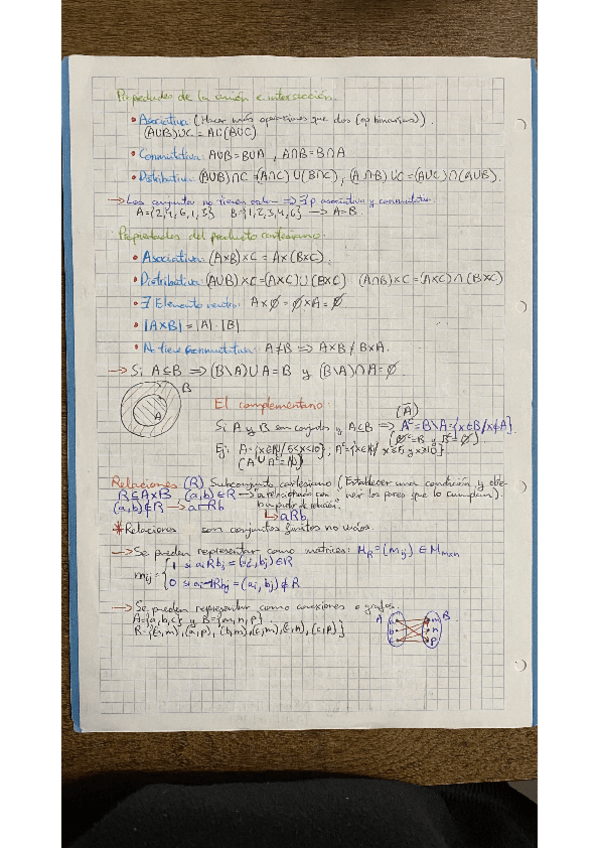 Propiedades de la unión e intersección.
• Asociativa: (Hacer más operaciones que dos (op binarias)).
(A∪B)∪C = A∪(B∪C)
• Conmutativa: A∪B=B∪A , A∩B=B∩A
• Distributiva: (A∪B)∩C=(A∩C)∪(B∩C), (A∩B)∪C=(A∪C)∩(A∪B).
→ Los conjuntos no tienen orden ⟹ ∃ p asociativa y conmutativa.
A={2,4,6,1,3} B={1,2,3,4,6} → A=B
Propiedades del producto cartesiano.
• Asociativa: (A×B)×C = A×(B×C).
• Distributiva: (A∪B)×C=(A×C)∪(B×C) (A∩B)×C=(A×C)∩(B×C)
• ∃ Elemento neutro: A×∅=∅×A=∅
• |A×B|=|A|·|B|
• No tiene conmutativa: A≠B ⟹ A×B≠B×A.
→ Si A⊆B ⟹ (B\A)∪A=B y (B\A)∩A=∅
B
A
El complementario
(A̅)
Si A y B son conjuntos y A⊂B ⟹ Aᶜ=B\A={x∈B/x∉A}
(∅ᶜ=B y Bᶜ=∅)
Ej: A={x∈ℕ/5<x<10}, Aᶜ={x∈ℕ/ x≤5 y x≥10}
(A∪Aᶜ=ℕ)
Relaciones (R) Subconjunto cartesiano (Establecer una condición y obte-
R⊆A×B , (a,b)∈R → a relacionado con b ner los pares que lo cumplan).
(a,b)∉R → a¬Rb
↳ aRb
* Relaciones son conjuntos finitos no vacíos.
→ Se pueden representar como matrices: M_R=(m_ij)∈M_m×n
m_ij={1 si a_iRb_j=(a_i,b_j)∈R
0 si a_i¬Rb_j=(a_i,b_j)∉R
→ Se pueden representar como conexiones o grafos.
A={a,b,c} y B={m,n,p}
R={(a,m),(a,p),(b,m),(c,m),(c,n),(c,p)}
A B
a m
b n
c p